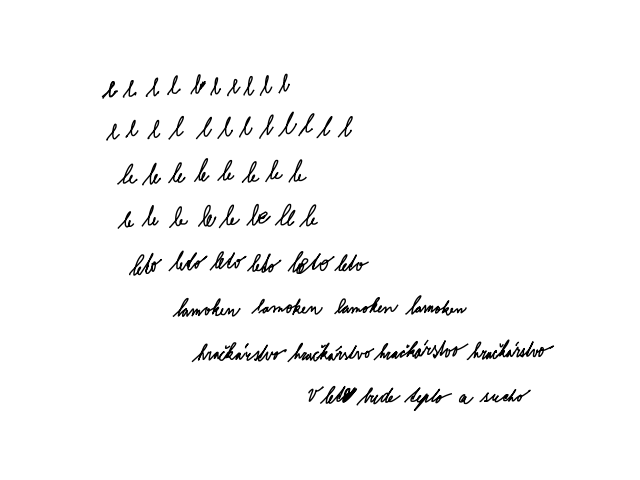 l l l l l l l l l l
l l l l l l l l l l l l
le le le le le le le le
le le le le le le le le
leto leto leto leto leto leto
lamoken lamoken lamoken lamoken
hračkárstvo hračkárstvo hračkárstvo hračkárstvo
V lete bude teplo a sucho